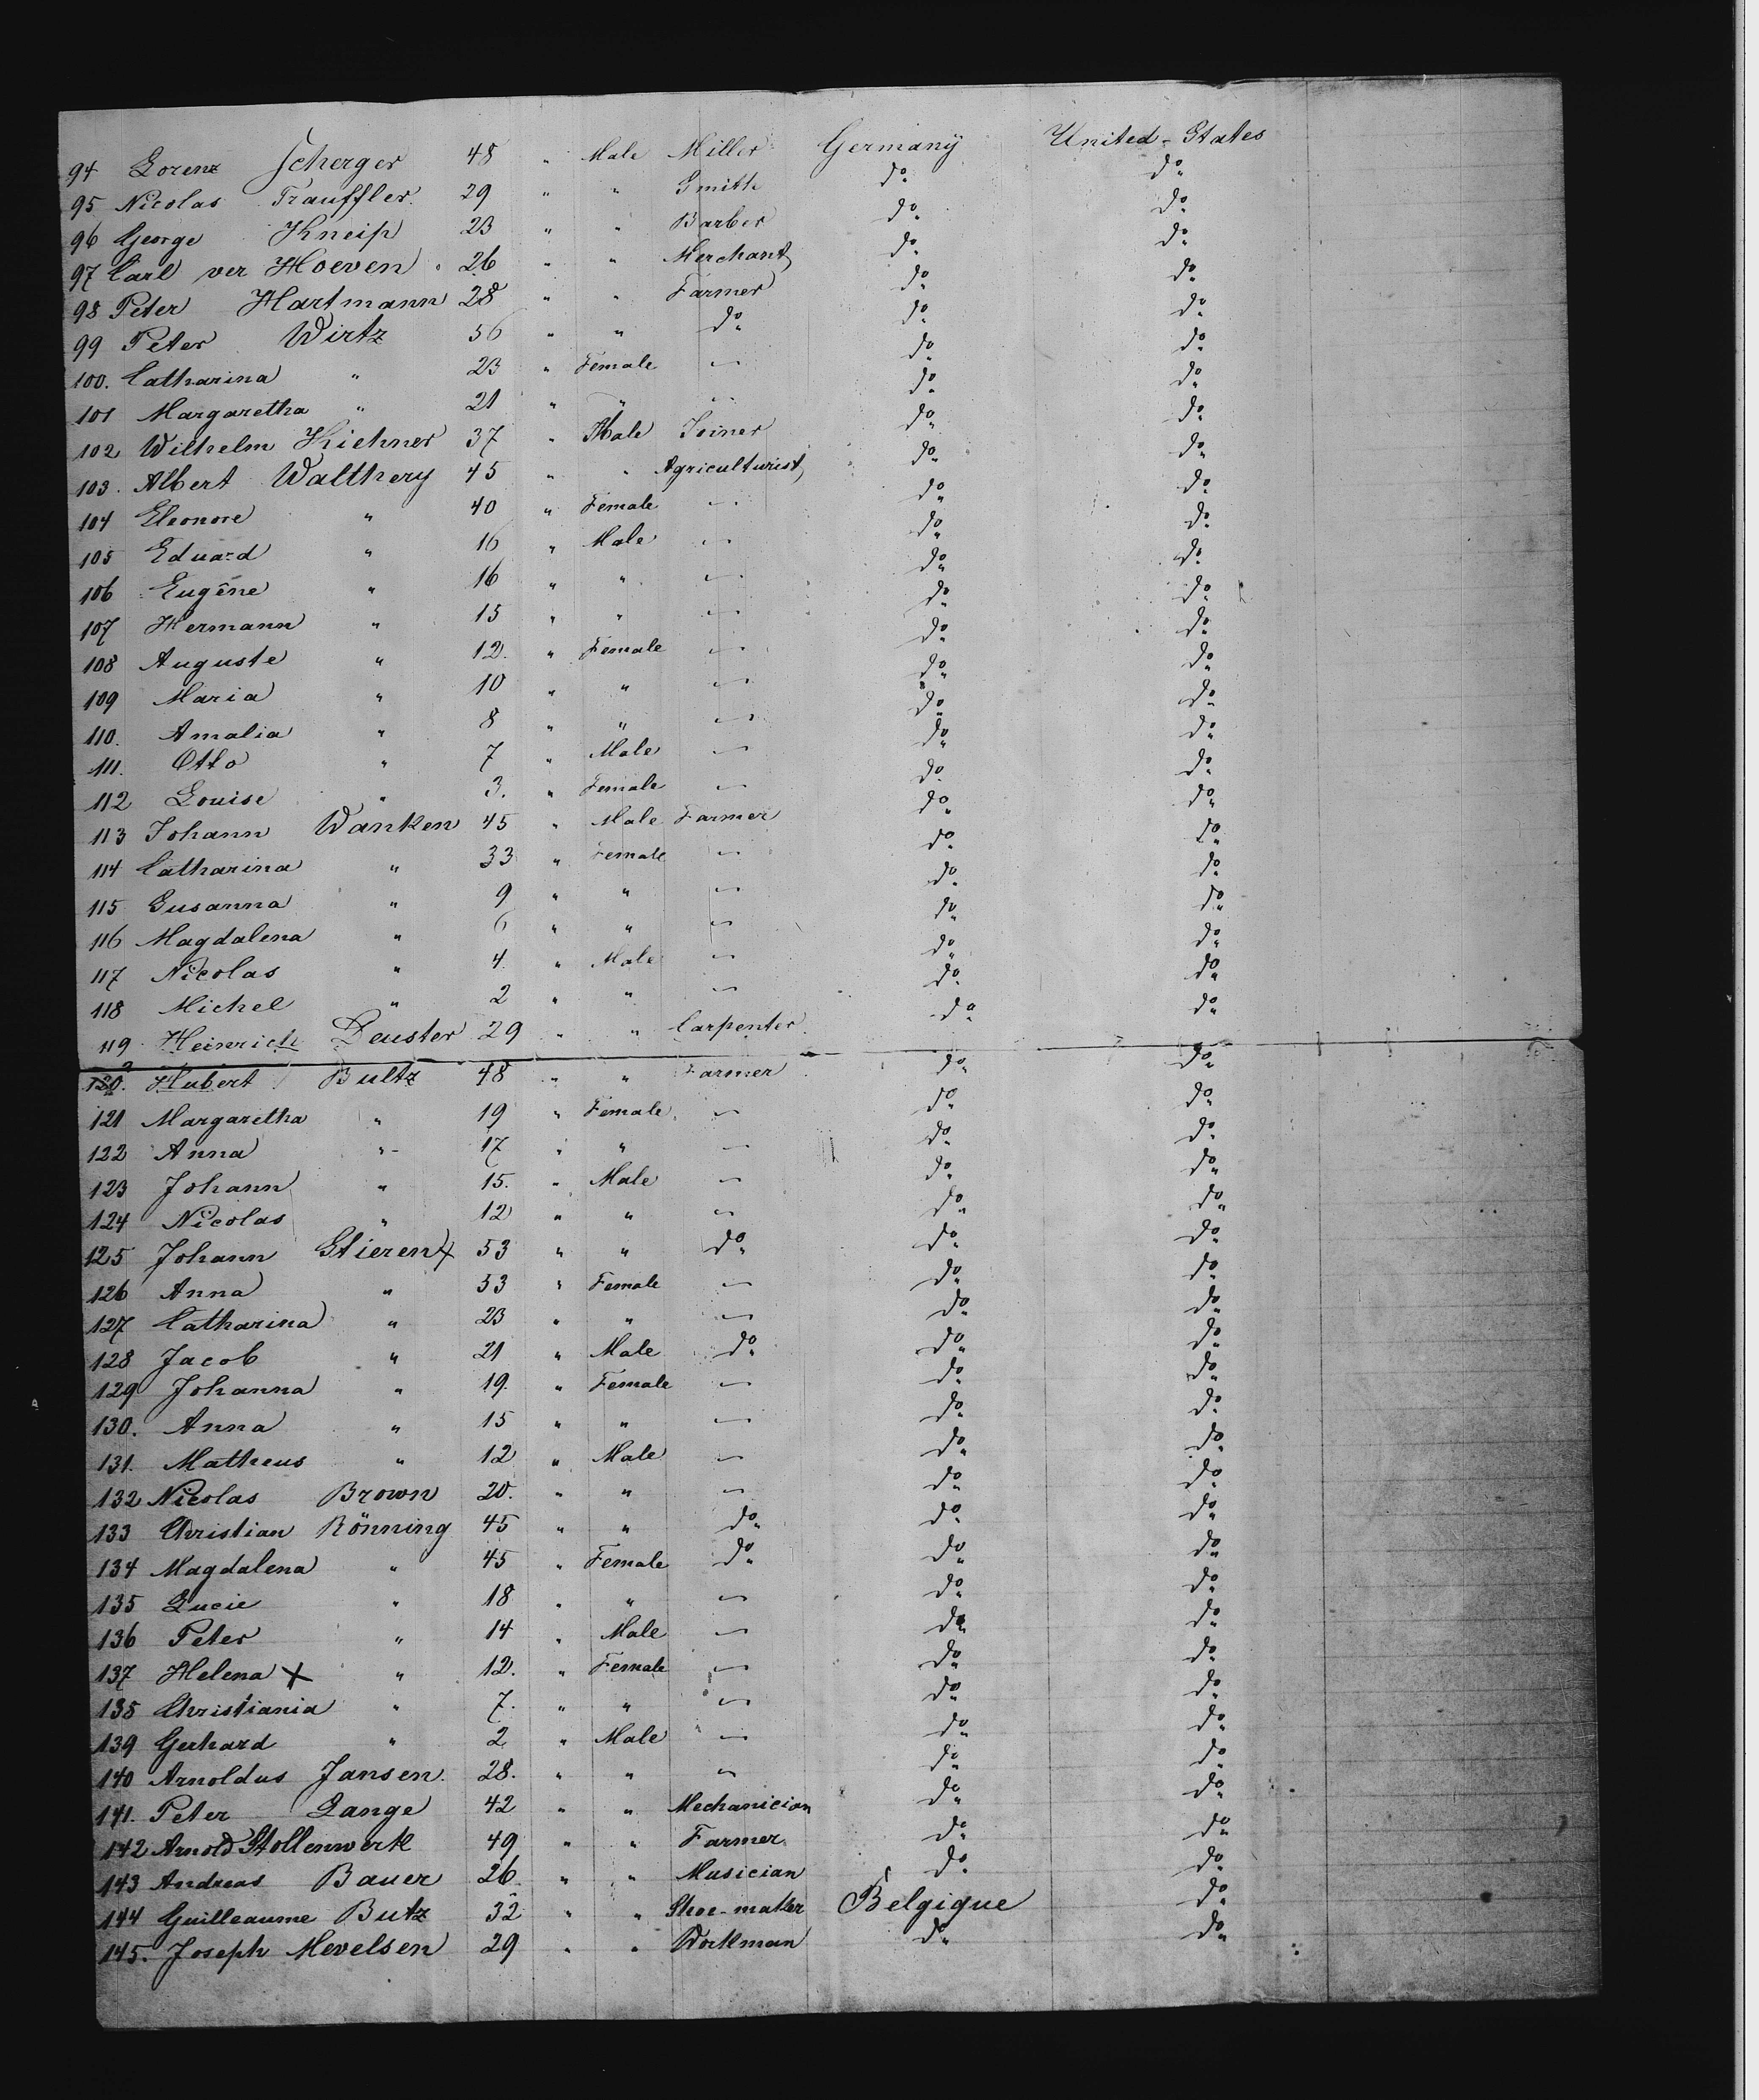 94 Lorenz Scherger 48 " Male Miller Germany United-States
95 Nicolas Trauffler 29 " " Smith do do
96 George Kneip 23 " " Barber do do
97 Carl ver Hoeven 26 " " Merchant do do
98 Peter Hartmann 28 " " Farmer do do
99 Peter Wirtz 56 " " do do do
100. Catharina " 23 " Female " do do
101 Margaretha " 21 " " " do do
102 Wilhelm Kichner 37 " Male Joiner do do
103. Albert Walthery 45 " " Agriculturist do do
104 Eleonore " 40 " Female " do do
105 Eduard " 16 " Male " do do
106 Eugêne " 16 " " " do do
107 Hermann " 15 " " " do do
108 Auguste " 12. " Female " do do
109 Maria " 10 " " " do do
110. Amalia " 8 " " " do do
111. Otto " 7 " Male " do do
112 Louise " 3. " Female " do do
113 Johann Wanken 45 " Male Farmer do do
114 Catharina " 33 " Female " do do
115 Susanna " 9 " " " do do
116 Magdalena " 6 " " " do do
117 Nicolas " 4 " Male " do do
118 Michel " 2 " " " do do
119 Heinrich Deuster 29 " " Carpenter do do
120. Hubert Bultz 48 " " Farmer do do
121 Margaretha " 19 " Female " do do
122 Anna " 17 " " " do do
123 Johann " 15. " Male " do do
124 Nicolas " 12 " " " do do
125 Johann Stieren X 53 " " do do do
126 Anna " 53 " Female " do do
127 Catharina " 23 " " " do do
128 Jacob " 21 " Male do do do
129 Johanna " 19. " Female " do do
130. Anna " 15 " " " do do
131. Matheus " 12 " Male " do do
132 Nicolas Brown 20. " " " do do
133 Christian Rönning 45 " " do do do
134 Magdalena " 45 " Female do do do
135 Lucie " 18 " " " do do
136 Peter " 14 " Male " do do
137 Helena X " 12. " Female " do do
138 Christiania " 7. " " " do do
139 Gerhard " 2 " Male " do do
140 Arnoldus Jansen. 28. " " " do do
141. Peter Lange 42 " " Mechanician do do
142 Arnold Stollenwerk 49 " " Farmer do do
143 Andreas Bauer 26 " " Musician do do
144 Guilleaume Butz 32 " " Shoe-maker Belgique do
145. Joseph Mevelsen 29 " " Workman do do